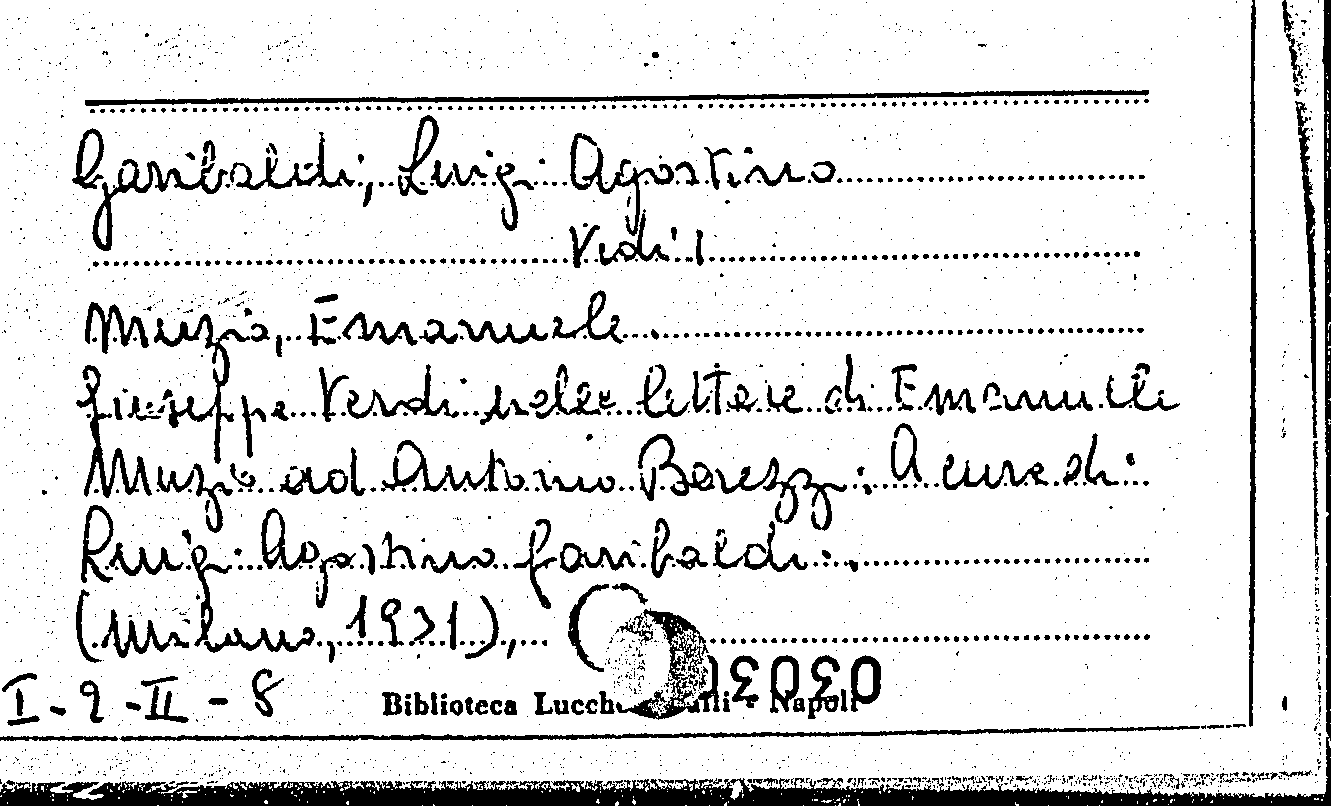 Garibaldi, Luigi Agostino
Vedi:
Muzio, Emanuele.
Giuseppe Verdi nelle lettere di Emanuele
Muzio ad Antonio Barezzi: A cura di:
Luigi Agostino Garibaldi:.
(Milano, 1931),
I-2-II-8
Biblioteca - Napoli